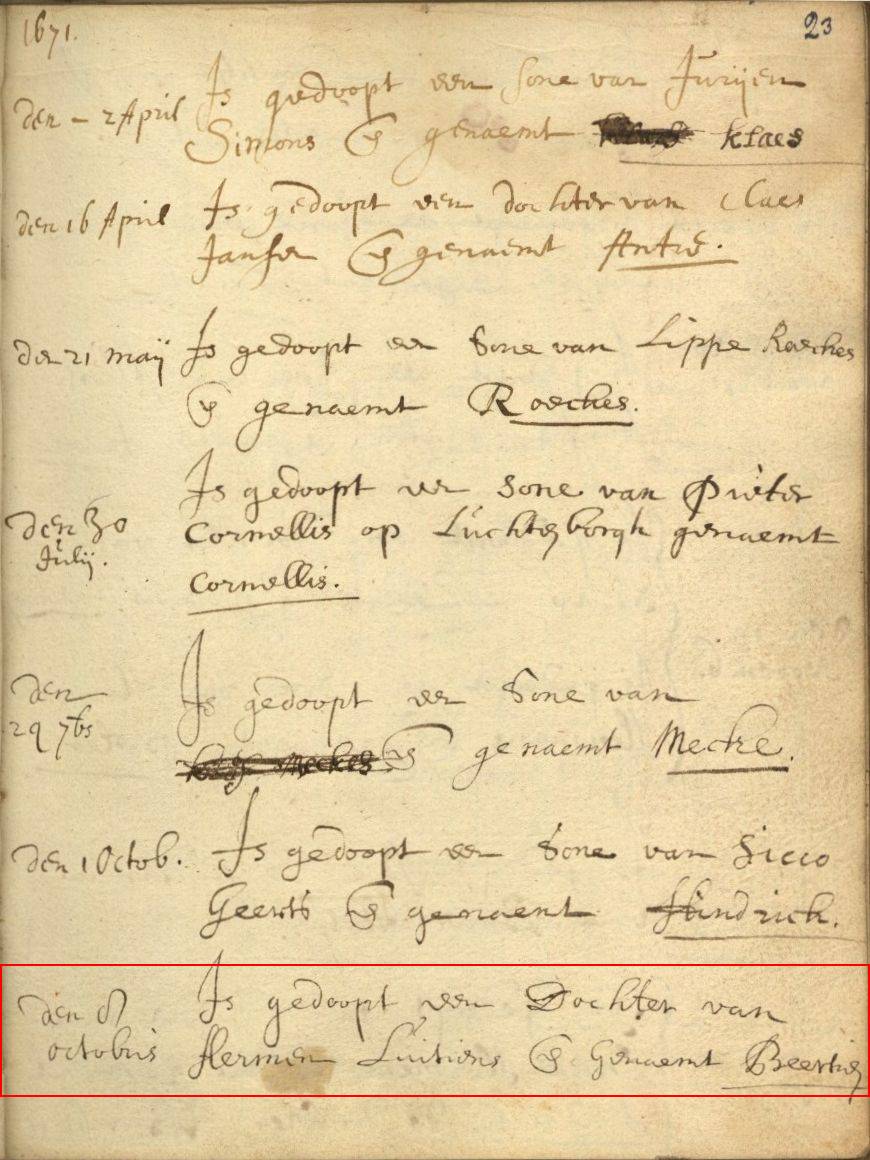 1671.
23
den - 2 April Is gedoopt een sone van Jurijen
Simons es genaemt klaes
den 16 April Is gedoopt een dochter van Claes
Jansen es genaemt Antie.
den 21 maij Is gedoopt een Sone van Lippe Roeckes
es genaemt Roeckes.
Is gedoopt een sone van Pieter
den 30 Cornellis op Luchtenborgh genaemt
Julij.
Cornellis.
den Is gedoopt een Sone van
29 7bs es genaemt Mecke.
den 1 Octob. Is gedoopt een Sone van Sicco
Geerts es genaemt Hindrick.
den 8 Is gedoopt een Dochter van
octobris Hermen Luitiens es Genaemt Beertien